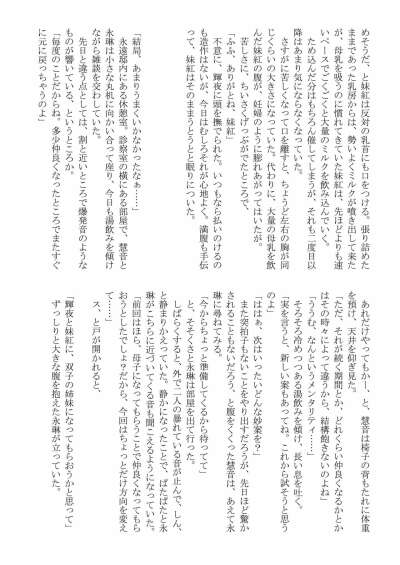 めそうだ、と妹紅は反対の乳首にも口をつける。張り詰めた
ままであった乳房からは、勢いよくミルクが噴き出して来た
が、母乳を吸うのに慣れてきていた妹紅は、先ほどよりも速
いペースでごくごくと大量のミルクを飲み込んでいく。
ため込んだ分はもちろん催してしまうが、それも二度目以
降はあまり気にならなくなっていた。
さすがに苦しくなって口を離すと、ちょうど左右の胸が同
じくらいの大きさになっていた。代わりに、大量の母乳を飲
んだ妹紅の腹が、妊婦のように膨れあがってはいたが。
苦しさに、ちいさくげっぷがでたところで、
「ふふ、ありがとね、妹紅」
不意に、輝夜に頭を撫でられた。いつもなら払いのけるの
も造作はないが、今日はむしろそれが心地よく。満腹も手伝
って、妹紅はそのままうとうとと眠りについた。
「結局、あまりうまくいかなかったなぁ……」
永遠邸内にある休憩室、診察室の横にある部屋で、慧音と
永琳は小さな丸机に向かい合って座り、今日も湯飲みを傾け
ながら雑談を交わしていた。
先日と違う点としては、割と近いところで爆発音のような
ものが響いている、というところか。
「毎度のことだからね、多少仲良くなったところでまたすぐ
に元に戻っちゃうのよ」
あれだけやってもかー、と、慧音は椅子の背もたれに体重
を預け、天井を仰ぎ見た。
「ただ、それが続く期間とか、どれくらい仲良くなるかとか
はその時々によって違うから、結構飽きないのよね」
「ううむ、なんというメンタリティ……」
そろそろ冷めつつある湯飲みを傾け、長い息を吐く。
「実を言うと、新しい案もあってね。これから試そうと思う
のよ」
「ははぁ、次はいったいどんな妙案を？」
また突拍子もないことをやり出すだろうが、先日ほど驚か
されることもないだろう、と腹をくくった慧音は、あえて永
琳に尋ねてみる。
「今からちょっと準備してくるから待ってて」
と、そそくさと永琳は部屋を出て行った。
しばらくすると、外で二人の暴れている音が止んで、しん、
と静まりかえっていた。静かになったことで、ぱたぱたと永
琳がこちらに近づいてくる音も聞こえるようになっていた。
「前回はほら、母子になってもらうことで仲良くなってもら
おうとしたでしょ？だから、今回はちょっとだけ方向を変え
て……」
ス、と戸が開かれると、
「輝夜と妹紅に、双子の姉妹になってもらおうかと思って」
ずっしりと大きな腹を抱えた永琳が立っていた。